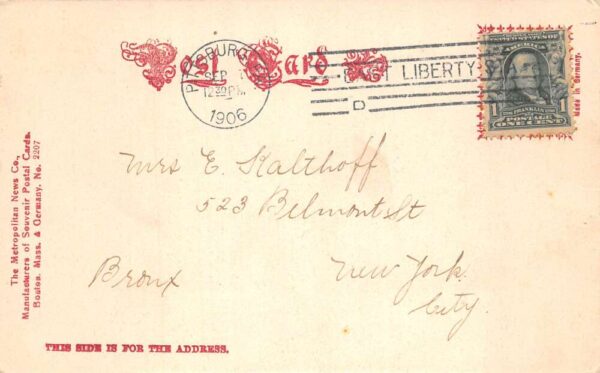 Post Card
PITTSBURG
SEP
12 30 PM
1906
EAST LIBERTY
D
UNITED STATES OF
AMERICA
FRANKLIN
1
POSTAGE
ONE CENT
Made in Germany.
Mrs E. Kalthoff
523 Belmont St
Bronx New York
City.
The Metropolitan News Co.,
Manufacturers of Souvenir Postal Cards.
Boston, Mass. & Germany. No. 2207
THIS SIDE IS FOR THE ADDRESS.